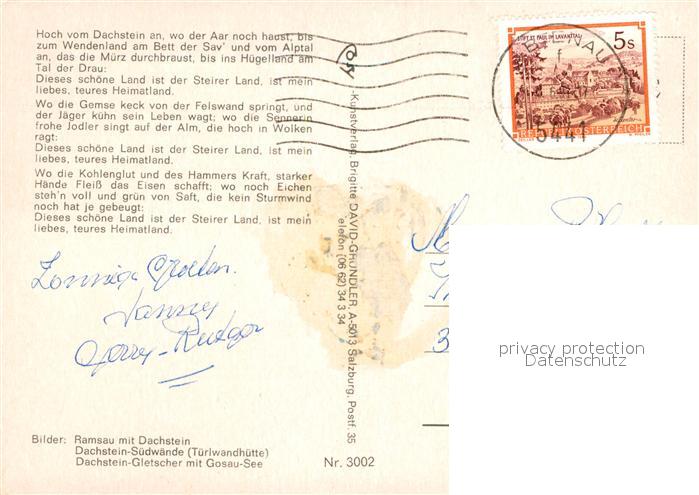 Hoch vom Dachstein an, wo der Aar noch haust, bis
zum Wendenland am Bett der Sav' und vom Alptal
an, das die Mürz durchbraust, bis ins Hügelland am
Tal der Drau:
Dieses schöne Land ist der Steirer Land, ist mein
liebes, teures Heimatland.
Wo die Gemse keck von der Felswand springt, und
der Jäger kühn sein Leben wagt; wo die Sennerin
frohe Jodler singt auf der Alm, die hoch in Wolken
ragt:
Dieses schöne Land ist der Steirer Land, ist mein
liebes, teures Heimatland.
Wo die Kohlenglut und des Hammers Kraft, starker
Hände Fleiß das Eisen schafft; wo noch Eichen
steh'n voll und grün von Saft, die kein Sturmwind
noch hat je gebeugt:
Dieses schöne Land ist der Steirer Land, ist mein
liebes, teures Heimatland.
Bilder: Ramsau mit Dachstein
Dachstein-Südwände (Türlwandhütte)
Dachstein-Gletscher mit Gosau-See
Nr. 3002
-Kunstverlag, Brigitte DAVID-GRÜNDLER, A-5013 Salzburg, Postf. 35
elefon (06 62) 34 3 34
STIFT ST. PAUL IM LAVANTTAL
5s
ÖSTERREICH
5441
privacy protection
Datenschutz